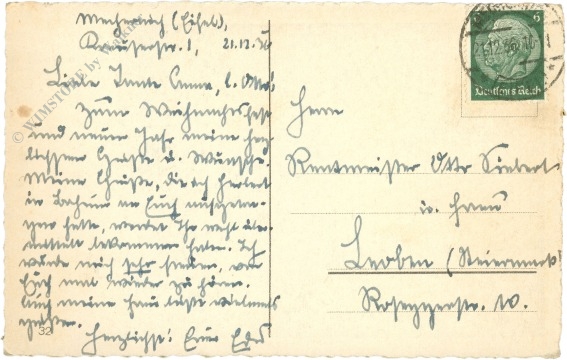 Mechernich (Eifel),
Kreuserstr. 1, 21.12.36
Liebe Tante Anna, l. Otto!
Zum Weihnachtsfest
und neuen Jahr meine herz-
lichsten Grüße u. Wünsche.
Meine Grüße, die ich Herbert
in Bochum an Euch aufgetra-
gen hatte, werdet Ihr wohl über-
mittelt bekommen haben. Ich
würde mich sehr freuen, von
Euch mal wieder zu hören.
Auch meine Frau läßt vielmals
grüßen.
Herzlichst: Euer
32
Herrn
Rentmeister Otto
u. Frau
Leoben (Steiermark)
Roseggerstr. 10.
6
Deutsches Reich
21.12.36
© VIMSTORE by